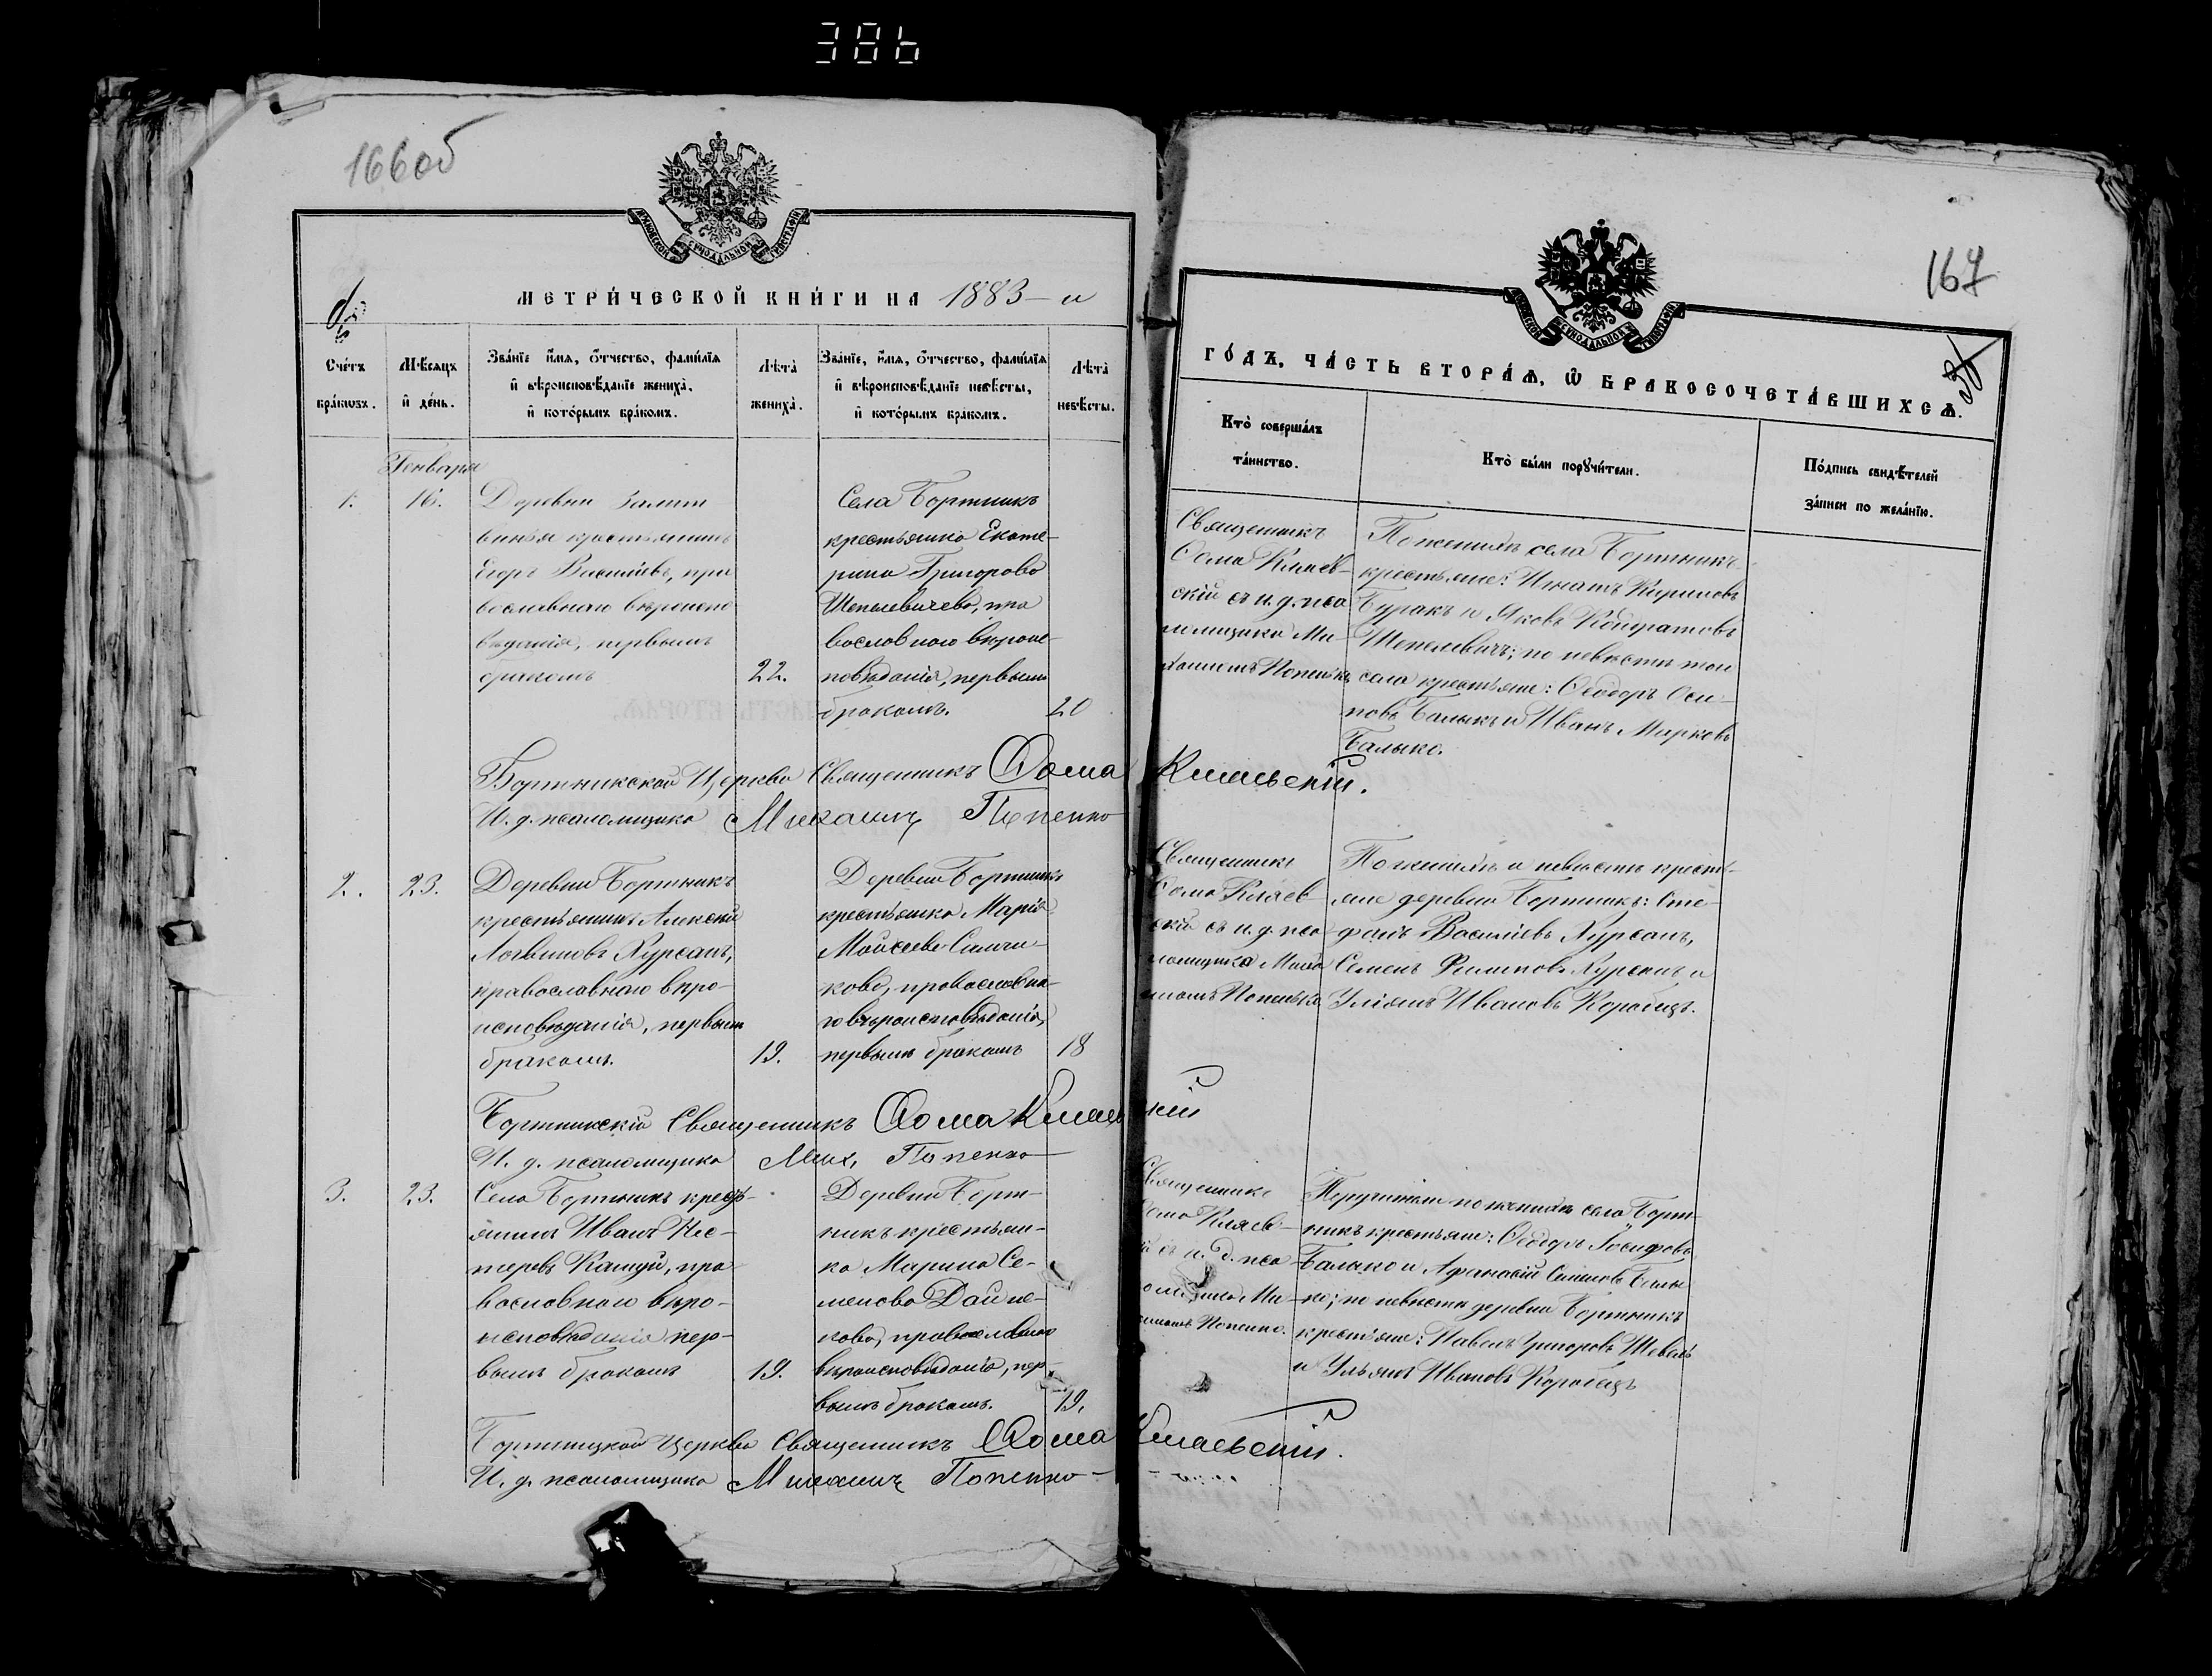 386
166 об
МЕТРИ́ЧЕСКОЙ КНИ́ГИ НА 1883-й
Сче́тъ бра́ковъ.
Мѣ́сяцъ и҆ де́нь.
Зва́нїе и҆́мя, о҆́тчество, фами́лїя и҆ вѣроисповѣ́данїе жениха̀, и҆ кото́рымъ бра́комъ.
Лѣта̀ жениха̀.
Зва́нїе, и҆́мя, о҆́тчество, фами́лїя и҆ вѣроисповѣ́данїе невѣ́сты, и҆ кото́рымъ бра́комъ.
Лѣта̀ невѣ́сты.
Генваря
1. 16.
Деревни
крестьянинъ
Егоръ Васильевъ, пра
вославнаго вѣроиспо
вѣданія, первымъ
бракомъ
22.
Села Бортникъ
крестьянка Екате-
рина Григорова
Шепелевичева, пра
вославнаго вѣроис-
повѣданія, первымъ
бракомъ.
20
Бортникской Церкви Священникъ Ѳома
И. д. псаломщика Михаилъ Попенко
2. 23.
Деревни Бортникъ
крестьянинъ Алексѣй
Логвиновъ Хурсанъ,
православнаго вѣро-
исповѣданія, первымъ
бракомъ.
19.
Деревни Бортникъ
крестьянка Марія
Моисеева
кова, православна-
го вѣроисповѣданія,
первымъ бракомъ
18
Бортникскій Священникъ Ѳома
И. д. псаломщика Мих. Попенко
3. 23.
Села Бортникъ кресть-
янинъ Иванъ Нес-
теровъ пра
вославнаго вѣро-
исповѣданія пер-
вымъ бракомъ
19.
Деревни Борт-
никъ крестьян-
ка Марина Се-
менова Дайне-
кова, православнаго
вѣроисповѣданія, пер-
вымъ бракомъ.
19.
Церкви Священникъ Ѳома
И. д. псаломщика Михаилъ Попенко
167
ГО́ДЪ, ЧА́СТЬ ВТОРА́Ѧ, Ѡ҆ БРАКОСОЧЕТА́ВШИХСѦ.
Кто̀ соверша́лъ та́инство.
Кто̀ бы́ли порꙋчи́тели.
По́дпись свидѣ́телей за́писи по жела́нїю.
Священникъ
Ѳома Кляев-
скій съ и. д. пса
ломщика Ми-
хаиломъ Попенко
По женихѣ села Бортникъ
крестьяне: Игнатъ Кириловъ
Буракъ и Яковъ
Шепелевичъ; по невѣстѣ того
села крестьяне: Ѳеодоръ Оси-
повъ Балыко и Иванъ Марковъ
Балыко.
Священникъ
Ѳома Кляев-
скій съ и. д. пса
ломщика
Попенко
По женихѣ и невѣстѣ кресть-
яне деревни Бортникъ: Сте-
фанъ Васильевъ Хурсанъ,
Семенъ Филиповъ Хурсанъ и
Уліянъ Ивановъ Коробецъ.
Священникъ
Ѳома Кляев-
съ и. д. пса
Ми-
Попенко.
Поручители по женихѣ села Борт-
никъ крестьяне: Ѳеодоръ Іосифовъ
Балыко и Афанасій Семеновъ Балы-
ко; по невѣстѣ деревни Бортникъ
крестьяне: Павелъ Григоровъ
и Ульянъ Ивановъ Коробецъ